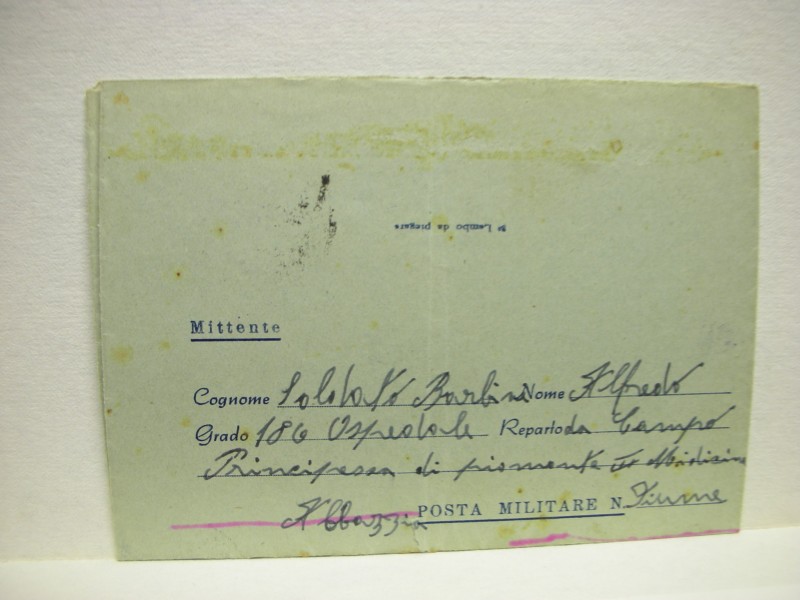 3º Lembo da piegare
Mittente
Cognome Soldato Barlin Nome Alfredo
Grado 186 Ospedale Reparto da Campo
Principessa di piemonte II Medicina
Abbazzia POSTA MILITARE N. Fiume